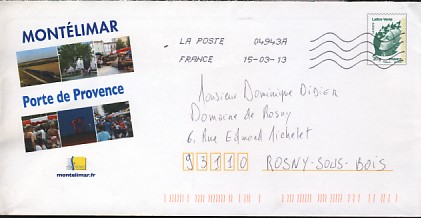 MONTÉLIMAR
Porte de Provence
montelimar.fr
LA POSTE 04943A
FRANCE 15-03-13
Lettre Verte
Monsieur Dominique DIDIER
Domaine de Rosny
6, Rue Edmond Michelet
93110 ROSNY-SOUS-BOIS